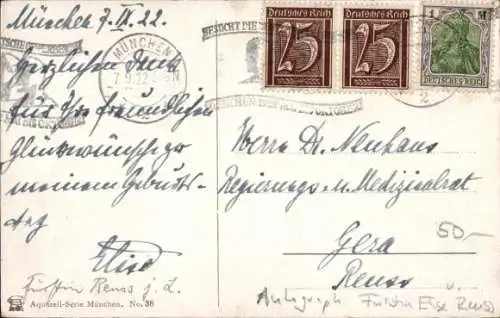 München 7. IX. 22.
Herzlichen Dank
für Ihre freundlichen
Glückwünsche zu
meinem Geburts-
tag
Elise
Fürstin Reuss j. L.
Aquarell-Serie München. No. 38
MÜNCHEN
BESUCHT DIE
Deutsches Reich
25
Deutsches Reich
25
1 M
DEUTSCHES REICH
2
Herrn Dr. Neuhaus
Regierungs- u. Medizinalrat
Gera
Reuss
50-
Autograph Fürstin Elise Reuss